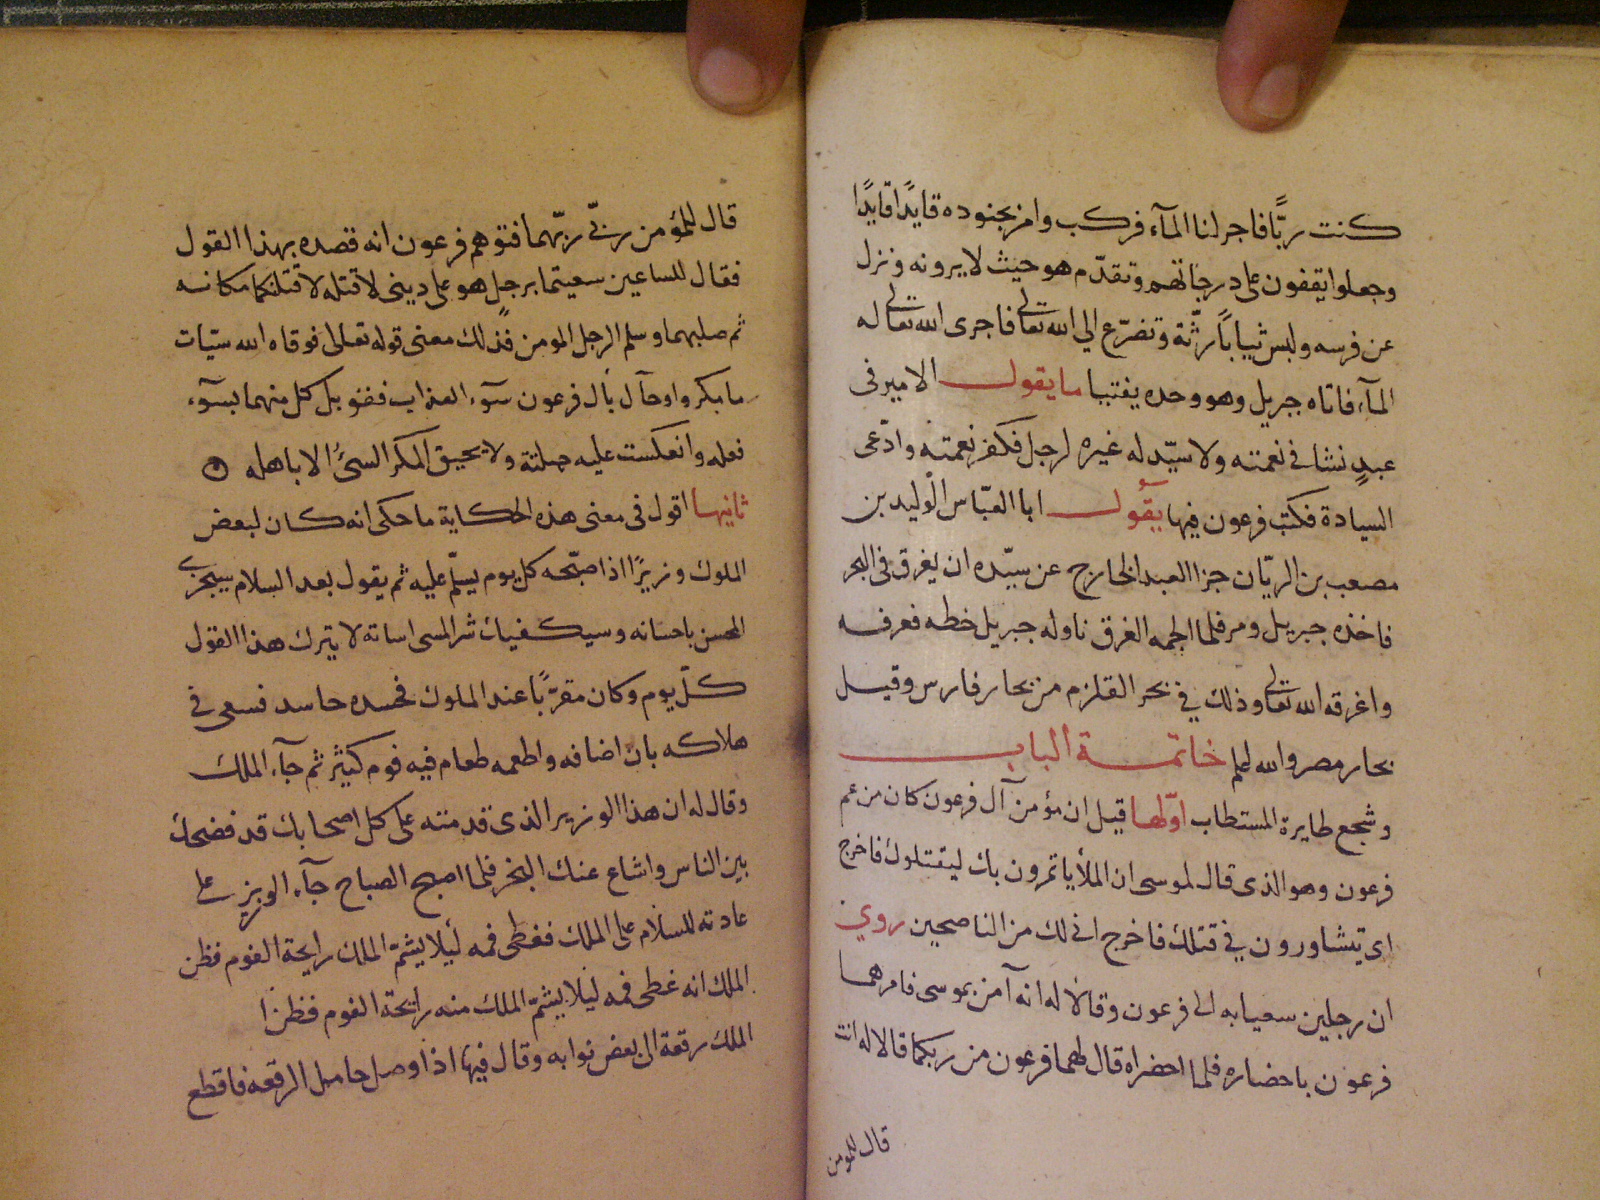 كنت ربًّا فاجر لنا المآء فركب وامر بجنوده قايدًا قايدًا
وجعلوا يقفون على درجاتهم وتقدّم هو حيث لا يرونه ونزل
عن فرسه ولبس ثيابًا رثّة وتضرّع الي الله تعالى فاجرى الله تعالى له
المآء فاتاه جبريل وهو وحده بفتيا ما يقول الامير في
عبدٍ نشا في نعمته ولا سيّد له غيره لرجل فكفر نعمته وادّعى
السيادة فكتب فرعون فيها يقول ابا العبّاس الوليد بن
مصعب بن الريّان جزا العبد الخارج عن سيّده ان يغرق في البحر
فاخذه جبريل ومر فلما الجمه الغرق ناوله جبريل خطه فعرفه
واغرقه الله تعالى وذلك في بحر القلزم من بحار فارس وقيل
بحار مصر والله اعلم خاتمة الباب
وسجع طايرة المستطاب اوّلها قيل ان مؤمن آل فرعون كان من عم
فرعون وهو الذى قال لموسى ان الملأ ياتمرون بك ليقتلوك فاخرج
اى يتشاورون في قتلك فاخرج اني لك من الناصحين روي
ان رجلين سعيا به الى فرعون وقالا له انه آمن بموسى فامرهما
فرعون باحضاره فلما احضراه قال لهما فرعون من ربكما قالا له انت
قال للمومن
قال للمؤمن من ربّي ربّهما فتوهم فرعون انه قصده بهذا القول
فقال للساعين سعيتما برجل هو على ديني لاقتله لاقتلنكما مكانه
ثم صلبهما وسلم الرجل المومن فذلك معنى قوله تعالى فوقاه الله سيّات
ما مكروا وحآل بأل فرعون سوء العذاب فقوبل كل منهما بسوء
فعله وانعكست عليه حيلته ولا يحيق المكر السيّئ الا باهله
ثانيها اقول في معنى هذه الحكاية ما حكى انه كان لبعض
الملوك وزيرًا اذا صبّحه كل يوم يسلّم عليه ثم يقول بعد السلام سيجزى
المحسن باحسانه وسيكفيك شر المسى اساته لا يترك هذا القول
كلّ يوم وكان مقرّبًا عند الملوك فحسده حاسد فسعى في
هلاكه بان اضافه واطعمه طعام فيه فوم كثير ثم جآء الملك
وقال له ان هذا الوزير الذى قدمته على كل اصحابك قد فضحك
بين الناس واشاع عنك البخر فلما اصبح الصباح جآء الوزير على
عادته للسلام على الملك فغطى فمه ليلا يشمّ الملك رايحة الفوم فظن
الملك انه غطى فمه ليلا يشمّ الملك منه رايحة الفوم فظن ا
الملك رقعة الى بعض نوابه وقال فيها اذا وصل حامل الرقعه فاقطع